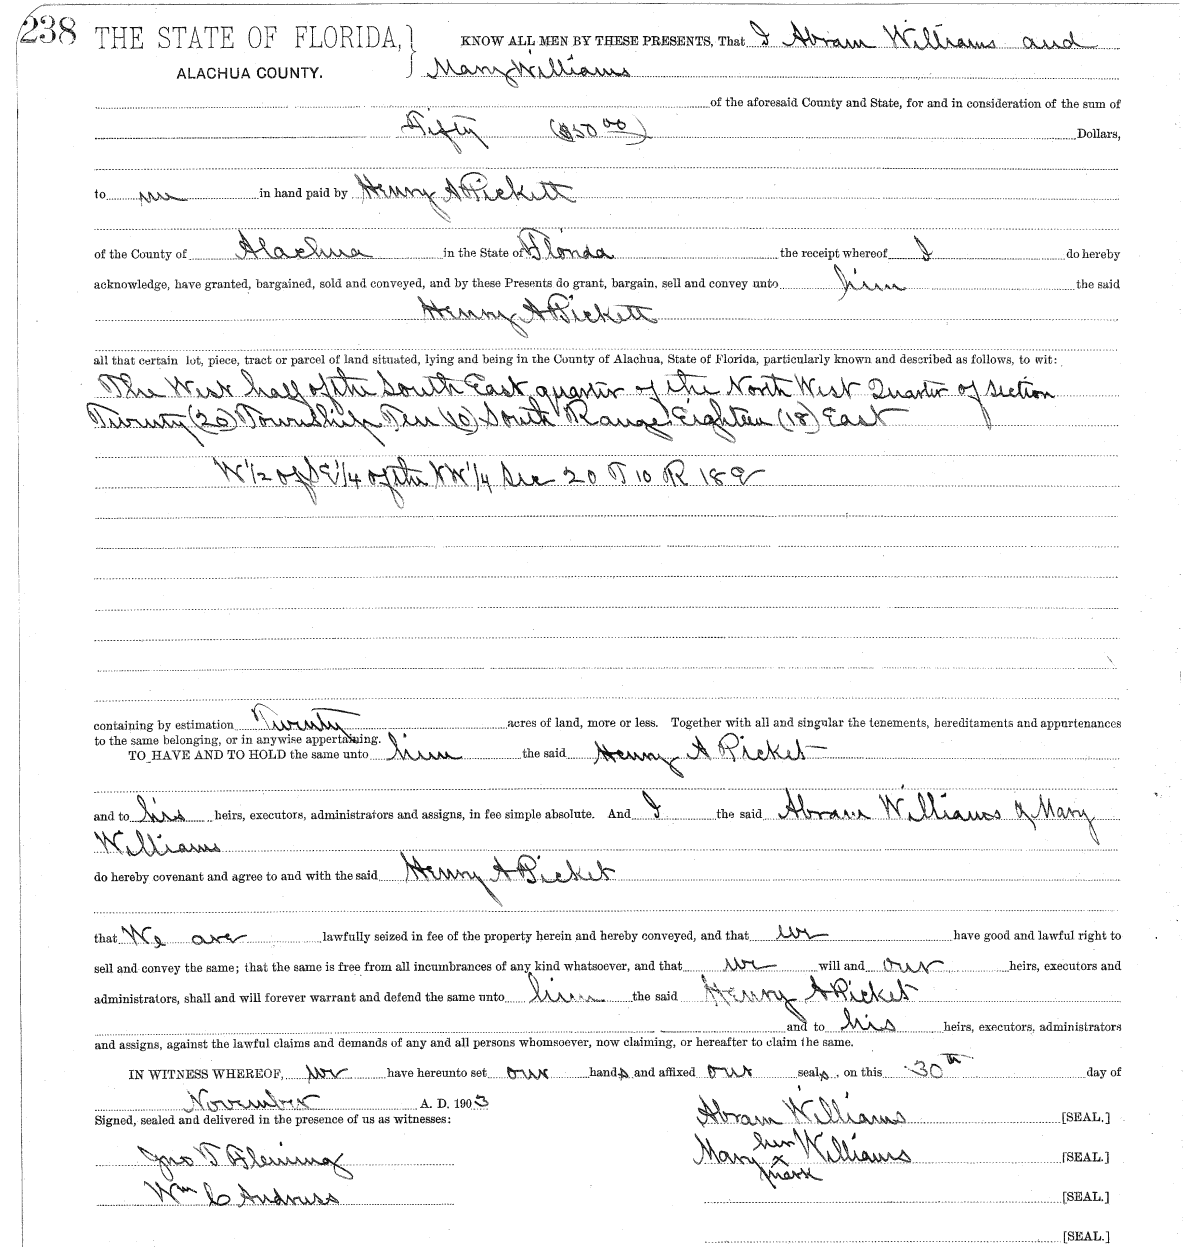 238 THE STATE OF FLORIDA, KNOW ALL MEN BY THESE PRESENTS, That I Abram Williams and
ALACHUA COUNTY. Mary Williams
of the aforesaid County and State, for and in consideration of the sum of
Fifty ($50 00) Dollars,
to me in hand paid by Henry A Pickett
of the County of Alachua in the State of Florida the receipt whereof I do hereby
acknowledge, have granted, bargained, sold and conveyed, and by these Presents do grant, bargain, sell and convey unto him the said
Henry A Pickett
all that certain lot, piece, tract or parcel of land situated, lying and being in the County of Alachua, State of Florida, particularly known and described as follows, to wit:
The West half of the South East quarter of the North West Quarter of section
Twenty (20) Township Ten (10) South Range Eighteen (18) East
W 1/2 of S E 1/4 of the N W 1/4 Sec 20 T 10 R 18 E
containing by estimation Twenty acres of land, more or less. Together with all and singular the tenements, hereditaments and appurtenances
to the same belonging, or in anywise appertaining.
TO HAVE AND TO HOLD the same unto him the said Henry A Picket
and to his heirs, executors, administrators and assigns, in fee simple absolute. And I the said Abram Williams & Mary
Williams
do hereby covenant and agree to and with the said Henry A Picket
that We are lawfully seized in fee of the property herein and hereby conveyed, and that we have good and lawful right to
sell and convey the same; that the same is free from all incumbrances of any kind whatsoever, and that we will and our heirs, executors and
administrators, shall and will forever warrant and defend the same unto him the said Henry A Picket
and to his heirs, executors, administrators
and assigns, against the lawful claims and demands of any and all persons whomsoever, now claiming, or hereafter to claim the same.
IN WITNESS WHEREOF, we have hereunto set our hands and affixed our seals on this 30th day of
November A. D. 1903
Signed, sealed and delivered in the presence of us as witnesses: Abram Williams [SEAL.]
Jno T Fleming Mary her x mark Williams [SEAL.]
Wm C Andruss [SEAL.]
[SEAL.]